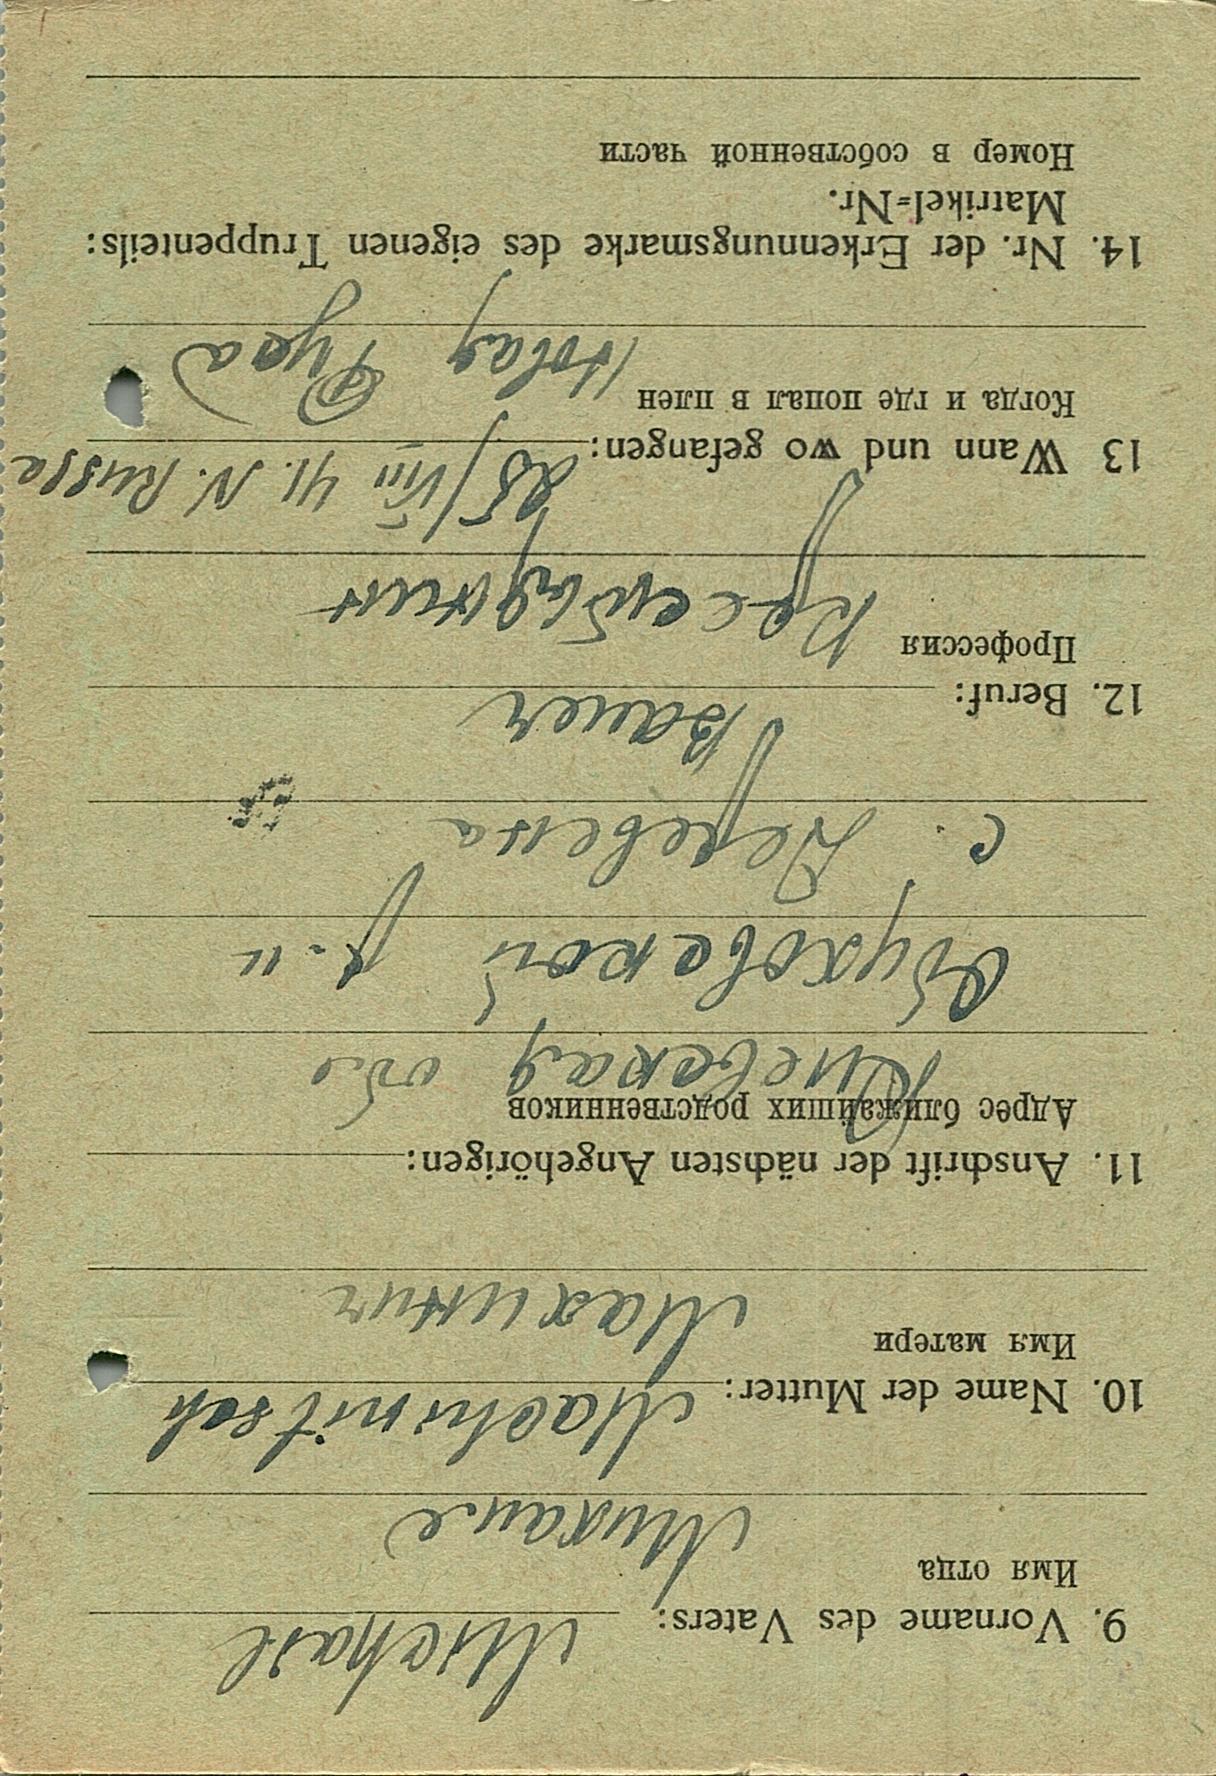 9. Vorname des Vaters: Michail
Имя отца
Михаил
10. Name der Mutter: Machinitsch
Имя матери
Махинич
11. Anschrift der nächsten Angehörigen:
Адрес ближайших родственников
Киевская обл
Обуховской р-н
с. Деревена
12. Beruf: Bauer
Профессия
Кресетьянин
13 Wann und wo gefangen: 25/VIII 41. N. Russa
Когда и где попал в плен
Новая Руса
14. Nr. der Erkennungsmarke des eigenen Truppenteils:
Matrikel=Nr.
Номер в собственной части